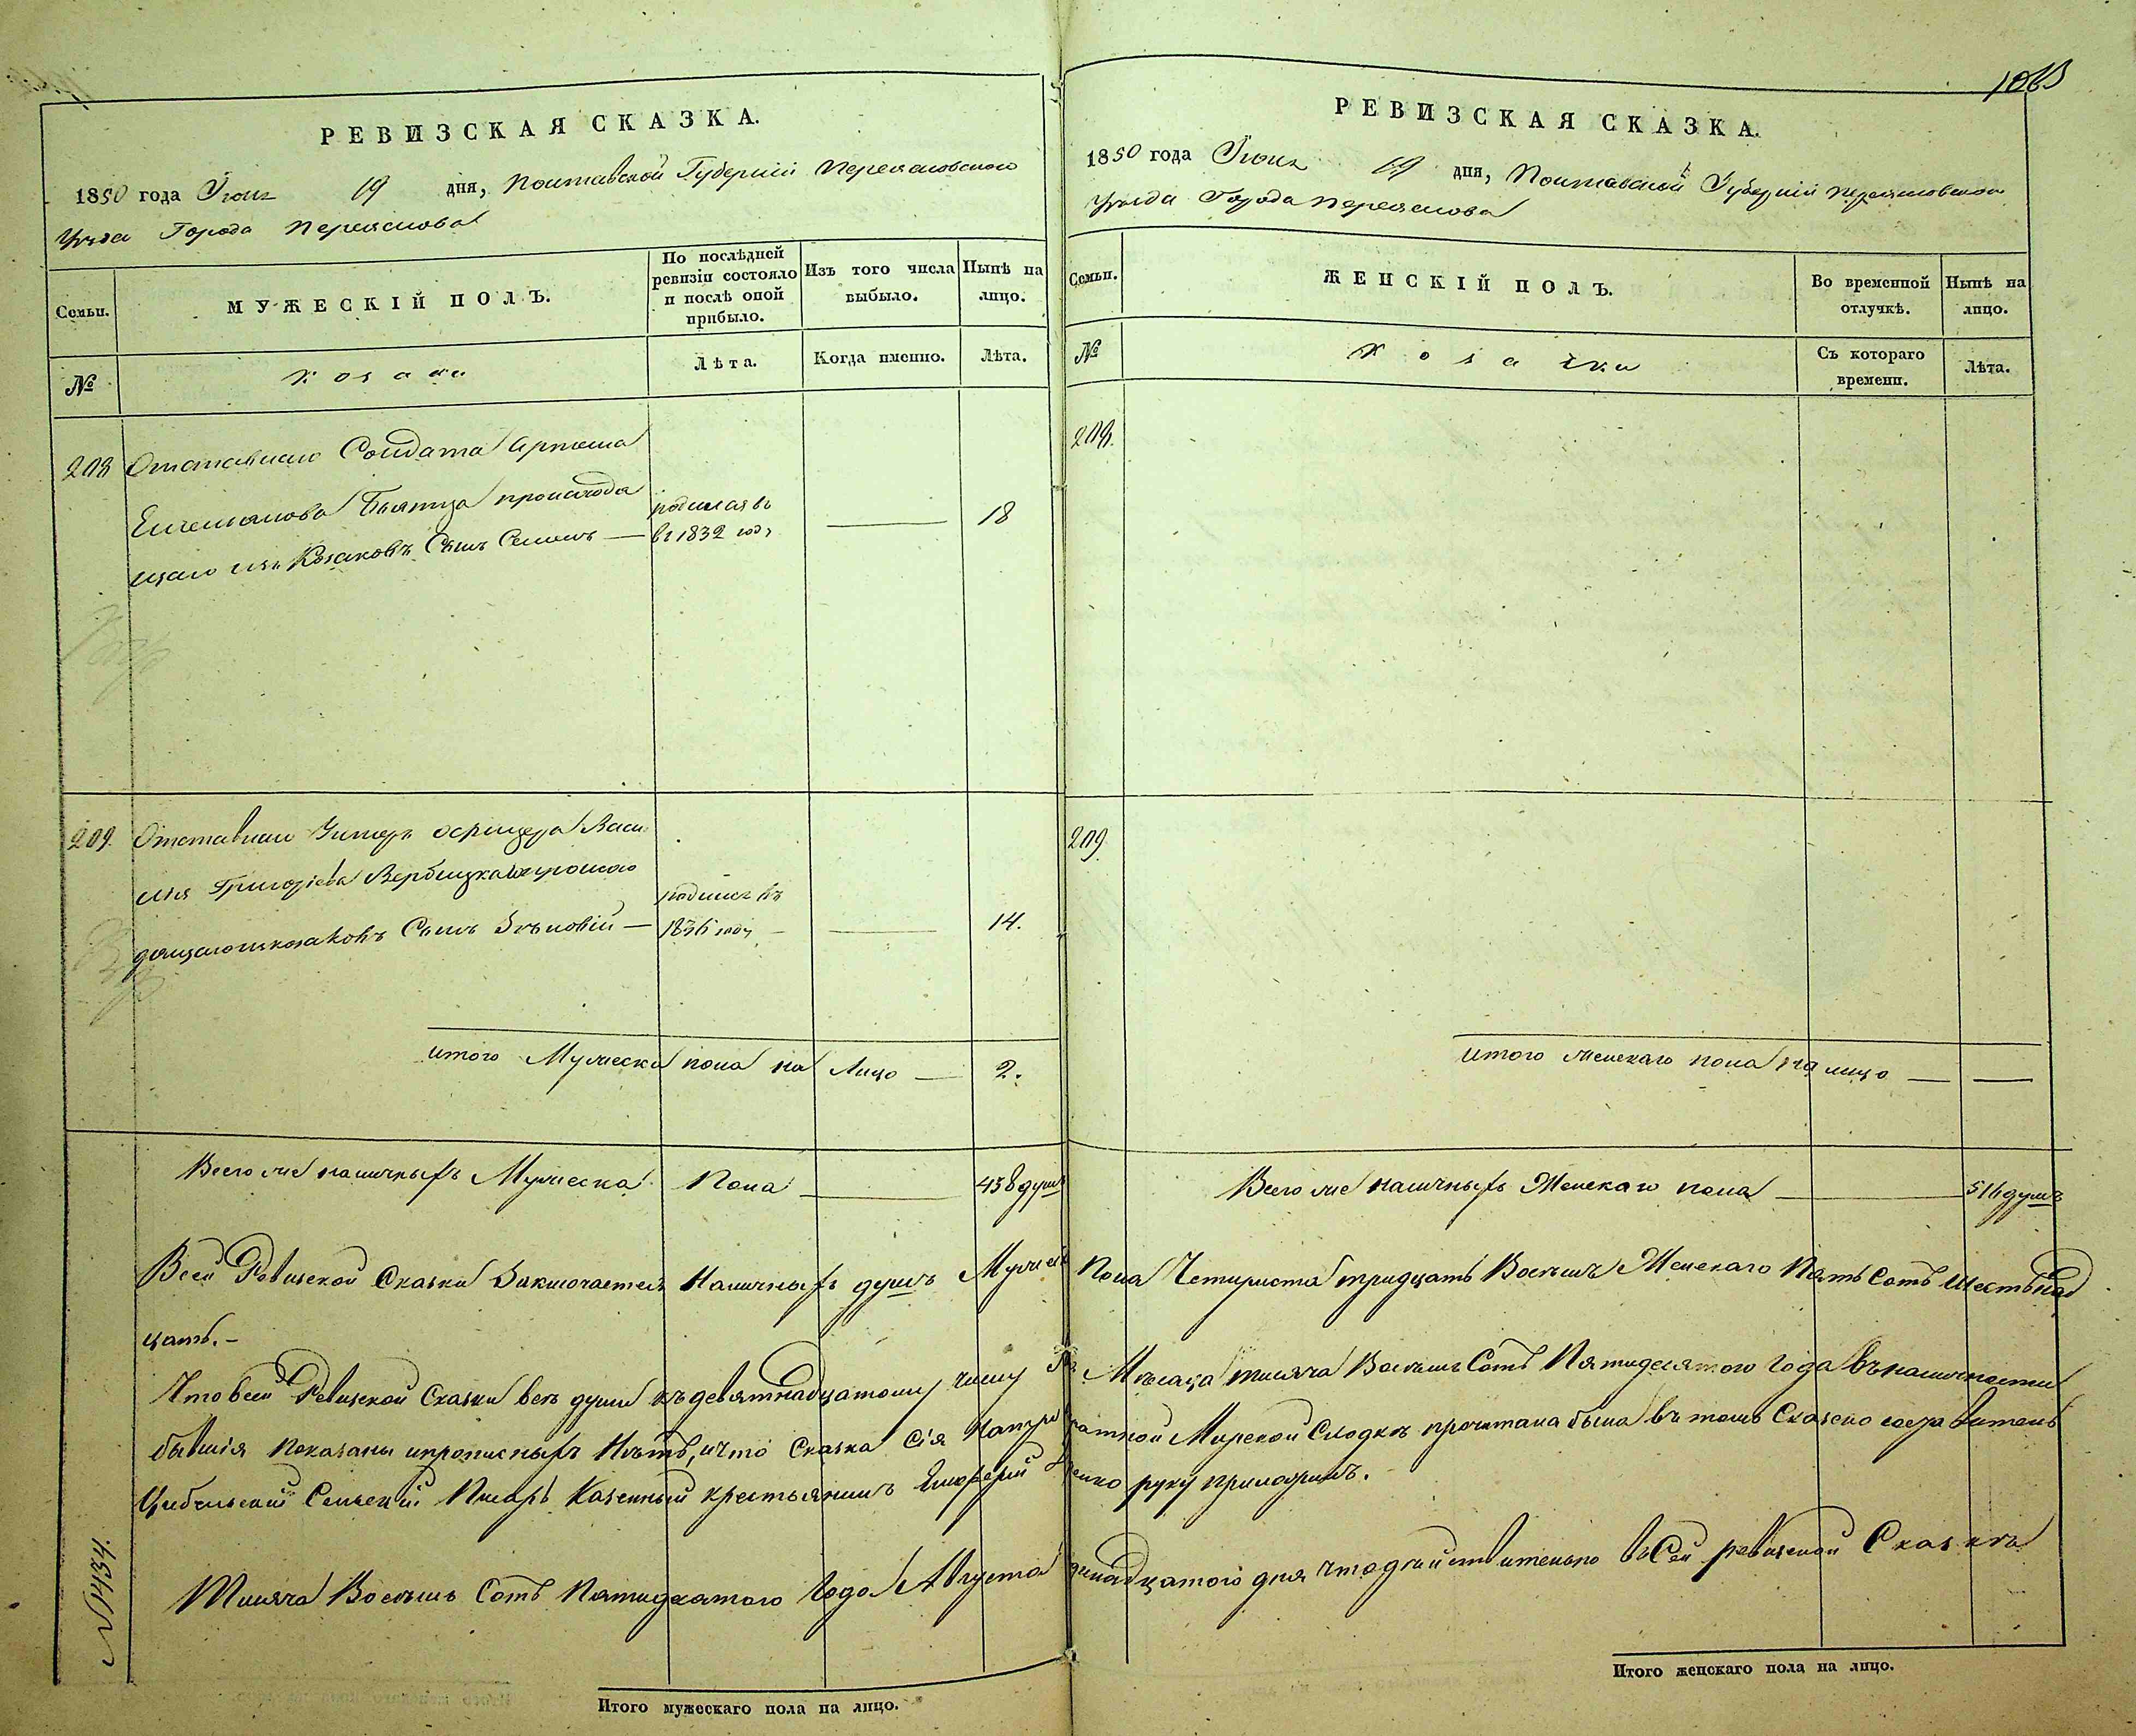 РЕВИЗСКАЯ СКАЗКА.
1850 года Июня 19 дня, Полтавской Губерніи Переяславского
Уезда Города Переяслова
Семьи.
МУЖЕСКІЙ ПОЛЪ.
По послѣдней ревизіи состояло и послѣ оной прибыло.
Изъ того числа выбыло.
Нынѣ на лицо.
№
Козаки
Лѣта.
Когда именно.
Лѣта.
208 Отставнаго Солдата Артема
происходя
родился в
щаго изъ Козаковъ Сынъ Семенъ — в 1832 году — 18
209. Отставнаго Унтеръ офицера Васи
лія Григоріева Вербицкаго происхо
родился въ
дящаго изъ козаковъ Сынъ Зѣновій — 1836 году — 14.
итого Мужеска пола на Лицо — 2.
Всего же наличныхъ Мужеска Пола — 438 душъ
Итого мужескаго пола на лицо.
№ 434.
РЕВИЗСКАЯ СКАЗКА.
1850 года Июня 19 дня, Полтавской Губерніи Переясловского
Уезда Города Переяслова
Семьи.
ЖЕНСКІЙ ПОЛЪ.
Во временной отлучкѣ.
Нынѣ на лицо.
№
Козачки
Съ котораго времени.
Лѣта.
208.
209.
итого женскаго пола на лицо — —
Всего же наличныхъ Женскаго пола — 516 душъ
Всей Ревизской Сказки Заключается Наличныхъ душъ Мужеска Пола Четыриста тридцать Восемъ Женскаго Пять Сотъ Шестьнад
цать. —
Что всей Ревизской Сказки всѣ души къ девятнадцатому числу Мѣсаца тисяча Восемъ Сотъ Пятидесятого Года въ наличности
бывшія показаны ипрописныхъ Нѣтъ, ичто Сказка Сія Мирской Сходкѣ прочитана была въ томъ
Цибельский Сельский Писарь Казенный крестьянинъ руку приложилъ.
Тисяча Восемъ Сотъ Пятидесатого Года Августа дня что действительно въ Сей ревизской Сказкѣ
Итого женскаго пола на лицо.